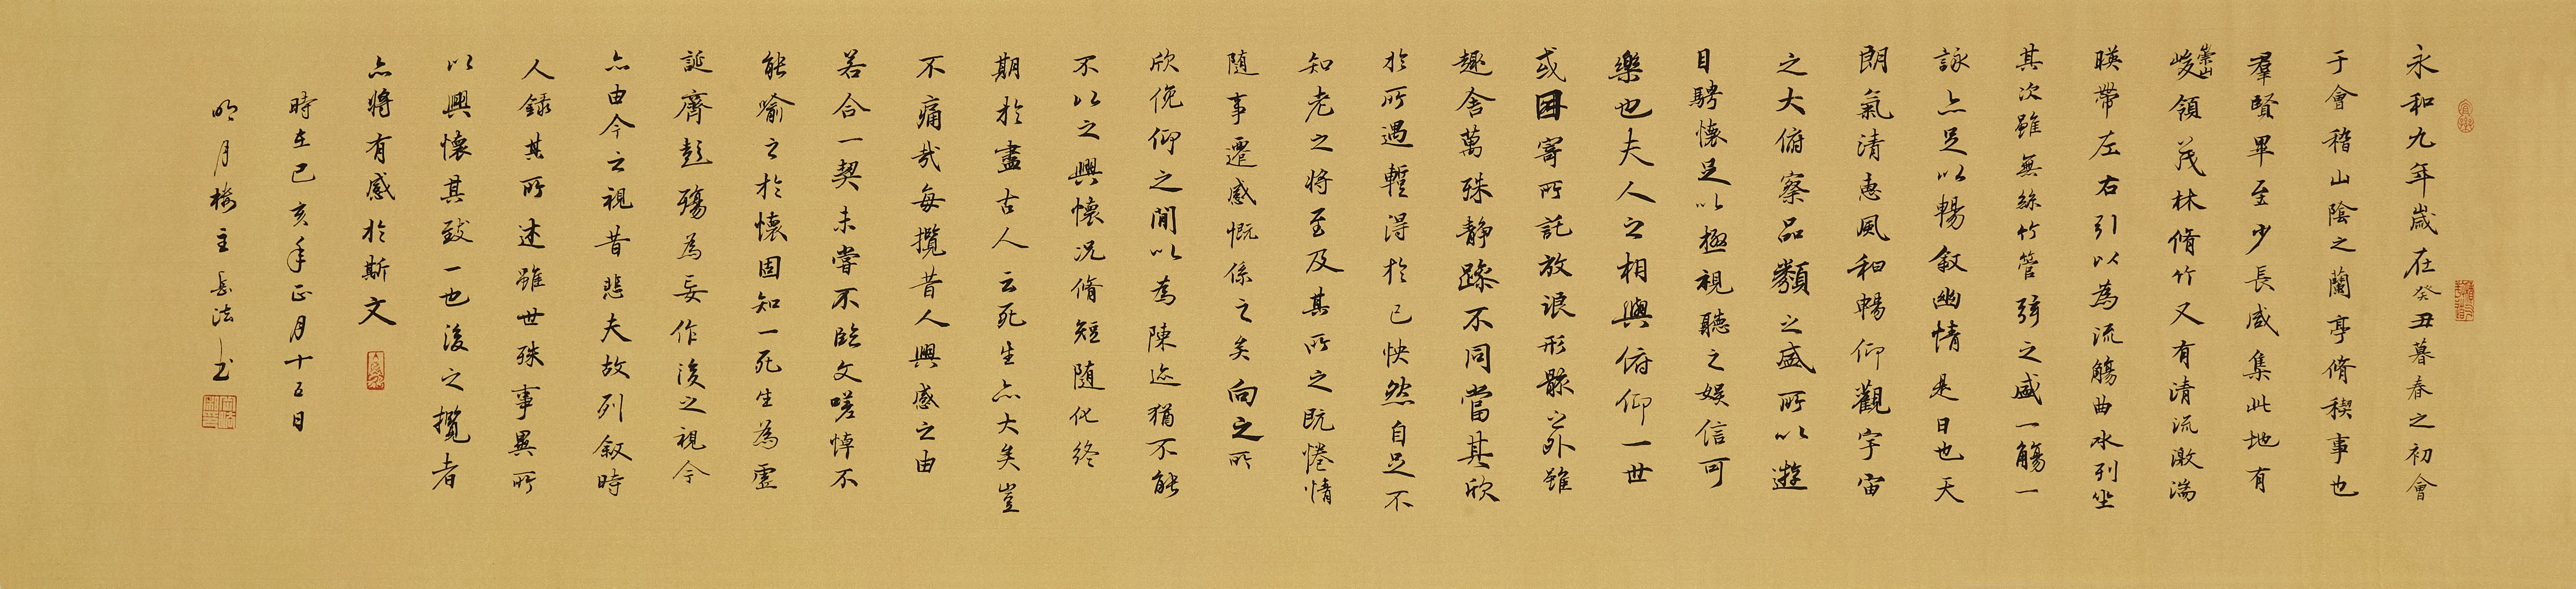 永和九年歲在癸丑暮春之初會
于會稽山陰之蘭亭脩稧事也
羣賢畢至少長咸集此地有
崇山峻領茂林脩竹又有清流激湍
暎帶左右引以為流觴曲水列坐
其次雖無絲竹管弦之盛一觴一
詠亦足以暢敘幽情是日也天
朗氣清惠風和暢仰觀宇宙
之大俯察品類之盛所以遊
目騁懷足以極視聽之娛信可
樂也夫人之相與俯仰一世
或因寄所託放浪形骸之外雖
趣舍萬殊靜躁不同當其欣
於所遇暫得於己怏然自足不
知老之將至及其所之既惓情
随事遷感慨係之矣向之所
欣俛仰之閒以為陳迹猶不能
不以之興懷况脩短随化終
期於盡古人云死生亦大矣豈
不痛哉每攬昔人興感之由
若合一契未嘗不臨文嗟悼不
能喻之於懷固知一死生為虛
誕齊彭殤為妄作後之視今
亦由今之視昔悲夫故列敘時
人錄其所述雖世殊事異所
以興懷其致一也後之攬者
亦將有感於斯文
時在己亥年正月十五日
明月樓主岳法书